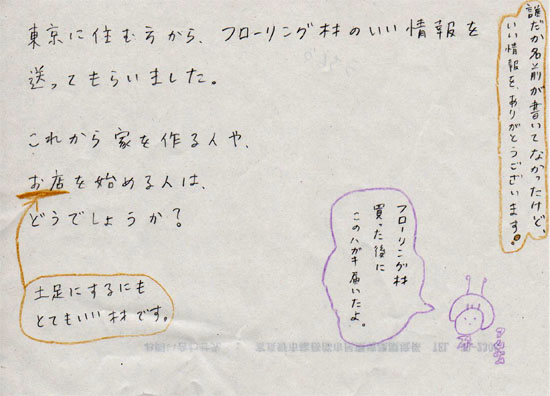 東京に住む方から、フローリング材のいい情報を
送ってもらいました。
これから家を作る人や、
お店を始める人は、
どうでしょうか？
土足にするにも
とてもいい材です。
フローリング材
買った後に
このハガキ届いたよ。
誰だか名前が書いてなかったけど、
いい情報を、ありがとうございます。